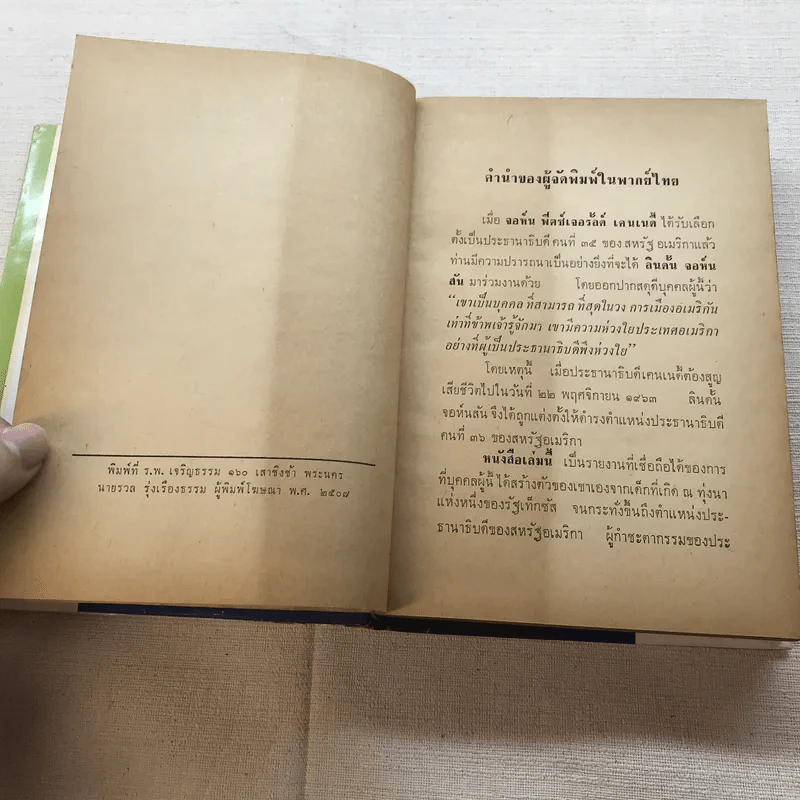 พิมพ์ที่ ร.พ. เจริญธรรม ๑๖๐ เสาชิงช้า พระนคร
นายรวล รุ่งเรืองธรรม ผู้พิมพ์โฆษณา พ.ศ. ๒๕๐๗
คำนำของผู้จัดพิมพ์ในพากย์ไทย
เมื่อ จอห์น ฟิตซ์เจอรัลด์ เคนเนดี้ ได้รับเลือก
ตั้งเป็นประธานาธิบดี คนที่ ๓๕ ของ สหรัฐ อเมริกาแล้ว
ท่านมีความปรารถนาเป็นอย่างยิ่งที่จะได้ ลินดั้น จอห์น
สัน มาร่วมงานด้วย โดยออกปากสดุดีบุคคลผู้นี้ว่า
“เขาเป็นบุคคล ที่สามารถ ที่สุดในวง การเมืองอเมริกัน
เท่าที่ข้าพเจ้ารู้จักมา เขามีความห่วงใยประเทศอเมริกา
อย่างที่ผู้เป็นประธานาธิบดีพึงห่วงใย”
โดยเหตุนี้ เมื่อประธานาธิบดีเคนเนดี้ต้องสูญ
เสียชีวิตไปในวันที่ ๒๒ พฤศจิกายน ๑๙๖๓ ลินดั้น
จอห์นสัน จึงได้ถูกแต่งตั้งให้ดำรงตำแหน่งประธานาธิบดี
คนที่ ๓๖ ของสหรัฐอเมริกา
หนังสือเล่มนี้ เป็นรายงานที่เชื่อถือได้ของการ
ที่บุคคลผู้นี้ ได้สร้างตัวของเขาเองจากเด็กที่เกิด ณ ทุ่งนา
แห่งหนึ่งของรัฐเท็กซัส จนกระทั่งขึ้นถึงตำแหน่งประ-
ธานาธิบดีของสหรัฐอเมริกา ผู้กำชะตากรรมของประ